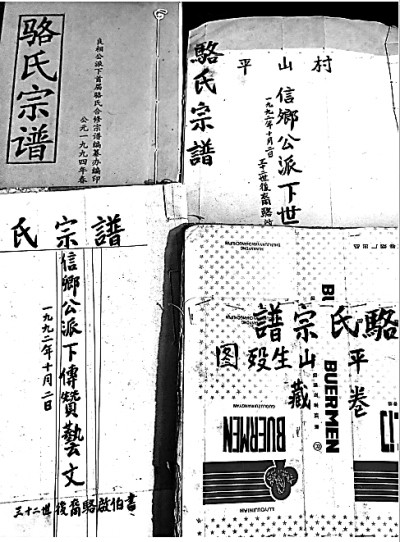 骆氏宗谱
良相公派下首届骆氏合修宗谱编纂办编印
公元一九九四年春
駱氏宗譜
平山村
信鄉公派下世
一九九二年十月二日
三十二世後裔駱啟
氏宗譜
信鄉公派下傳贊藝文
一九九二年十月二日
三十二世後裔駱啟伯書
駱氏宗譜
卷
平山生殁图
藏
BUERMEN
BUERMEN